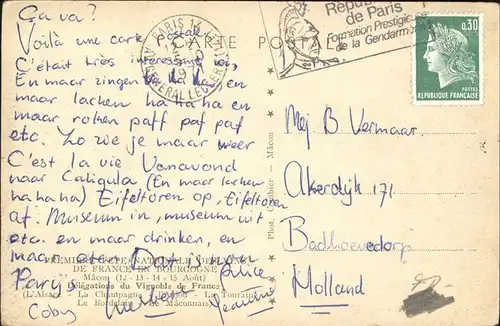 Ça va?
Voilà une carte postale.
C'était très interessant ici,
En maar zingen la la la en
maar lachen ha ha ha en
maar rohen paff paf paf
etc. Zo zie je maar weer
C'est la vie Vanavond
naar Caligula (En maar lachen
ha ha ha) Eifeltoren op, Eifeltoren
af. Museum in, museum uit
etc. en maar drinken, en
maar eten Dat is nou
Parijs
Coby
Jeanine
CARTE POSTALE
PARIS 14
AV. GENERAL LECLERC
République
de Paris
Formation Prestigieuse
de la Gendarmerie
0,30
POSTES
REPUBLIQUE FRANÇAISE
Mej B Vermaar
Akerdijk 171
Badhoevedorp
Holland
Phot. Combier - Mâcon
DE FRANCE EN BOURGOGNE
Mâcon (12 - 13 - 14 - 15 Août)
Délégations du Vignoble de France
(L'Alsace - La Champagne - La Touraine
Le Bordelais - Le Mâconnais)